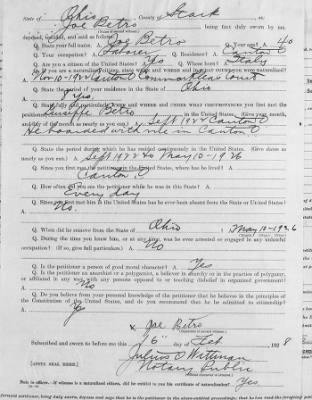 State of Ohio County of Stark ss:
Joe Betro being first duly sworn by me,
deposed, testified, and said as follows:
Q. State your full name? A. Joe Betro Q. Your age? A. 40
Q. Your occupation? A. Laborer Q. Residence? A. Canton O
Q. Are you a citizen of the United States? A. Yes Q. Whose born? Italy
Q. If you are a naturalized citizen, state when and where and how you became naturalized?
A. Nov-10-1920 Common Pleas Court
Q. State the period of your residence in the State of Ohio
A. 8 Yrs.
Q. State fully and particularly when and where and under what circumstances you first met the
petitioner
Giuseppe Betro in the United States. (Give year, month,
and day of the month as nearly as you can.) A. Sept 1922 Canton O
He boarded with me in Canton O
Q. State the period during which he has resided continuously in the State of (Give dates as
nearly as you can.) A. Sept 1922 to May 10-1926
Q. Since you first met the petitioner in the United States, where has he lived? A.
Canton O
Q. How often did you see the petitioner while he was in this State? A.
Every day
Q. Since you first met him in the United States has he ever been absent from the State or United States?
A. No.
Q. When did he remove from the State of Ohio ? May 10-1926
Q. During the time you know him, or at any time, was he ever arrested or engaged in any unlawful
occupation? (If so, give full particulars.) A. No
Q. Is the petitioner a person of good moral character? A. Yes
Q. Is the petitioner an anarchist or a polygamist, a believer in or in the practice of polygamy,
or affiliated in any way with any persons opposed to or teaching disbelief in organized government?
A. No
Q. Do you believe from your personal knowledge of the petitioner that he believes in the principles
of the Constitution of the United States, and do you recommend that he be admitted to citizenship?
A. Yes
x Joe Betro
Subscribed and sworn to before me this 6 day of Feb 1928
Julius O Wittman
[AFFIX SEAL HERE.] Notary Public
Note to officer.—If witness is a naturalized citizen, did he exhibit to you his certificate of naturalization? Yes